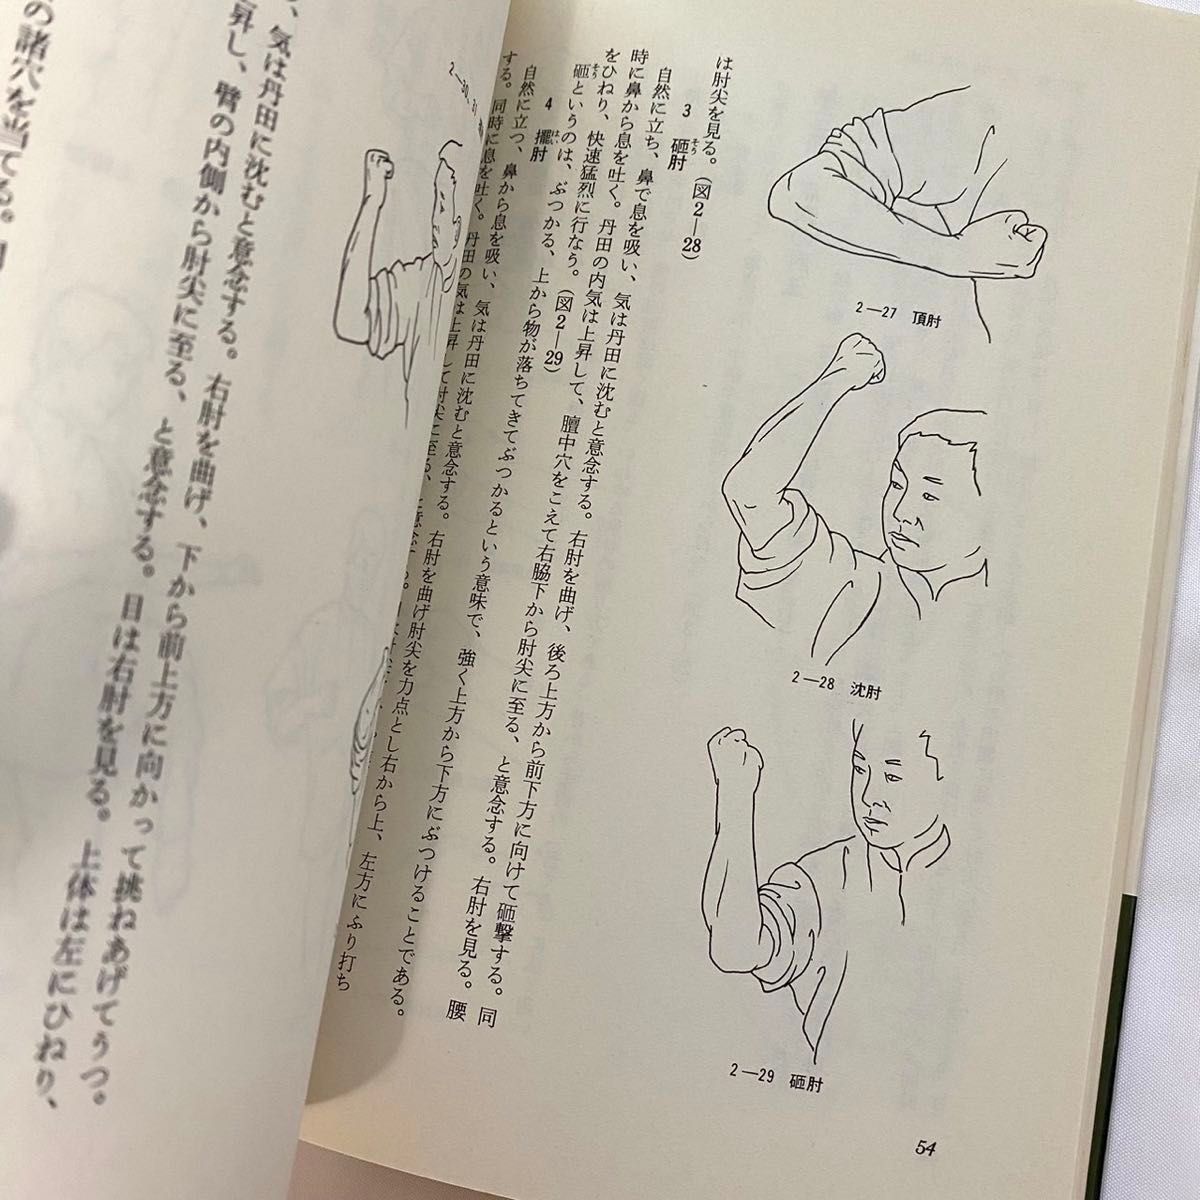 は肘尖を見る。(図2—28)
3 砸肘
そう
自然に立ち、鼻で息を吸い、気は丹田に沈むと意念する。右肘を曲げ、後ろ上方から前下方に向けて砸撃する。同
時に鼻から息を吐く。丹田の内気は上昇して、膻中穴をこえて右脇下から肘尖に至る、と意念する。右肘を見る。腰
をひねり、快速猛烈に行なう。(図2—29)
砸というのは、ぶつかる、上から物が落ちてきてぶつかるという意味で、強く上方から下方にぶつけることである。
そう
4 擺肘
はい
自然に立つ、鼻から息を吸い、気は丹田に沈むと意念する。右肘を曲げ肘尖を力点とし右から上、左方にふり打ち
する。同時に息を吐く。丹田の気は上昇して肘尖に至る、
2—30、31
2—27 頂肘
2—28 沈肘
2—29 砸肘
54
気は丹田に沈むと意念する。右肘を曲げ、下から前上方に向かって挑ねあげてうつ。
昇し、臂の内側から肘尖に至る、と意念する。目は右肘を見る。上体は左にひねり、
の諸穴を当てる。